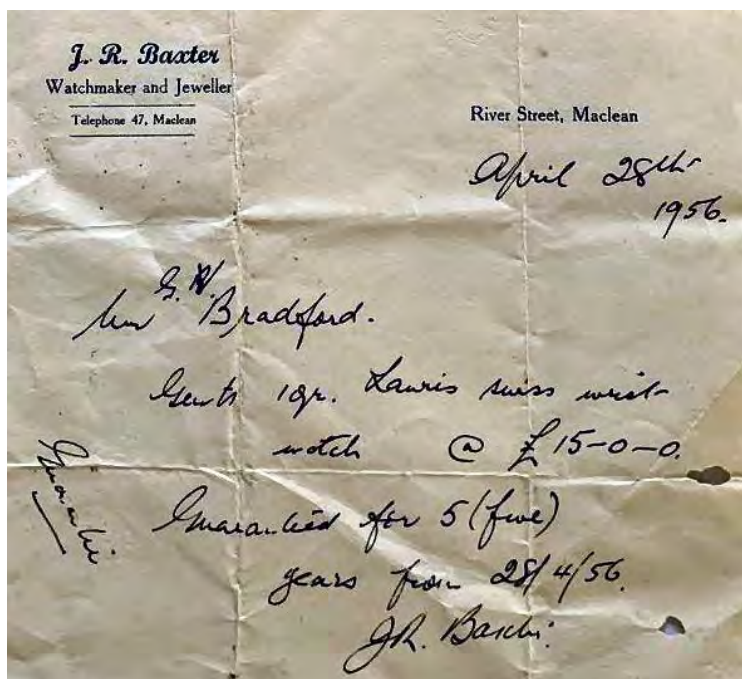 J. R. Baxter
Watchmaker and Jeweller
Telephone 47, Maclean
River Street, Maclean
April 28th
1956.
Bradford.
Gents Lauris swiss wrist-
watch @ £15-0-0.
Guarantee
Guaranteed for 5 (five)
years from 28/4/56.
J.R. Baxter.